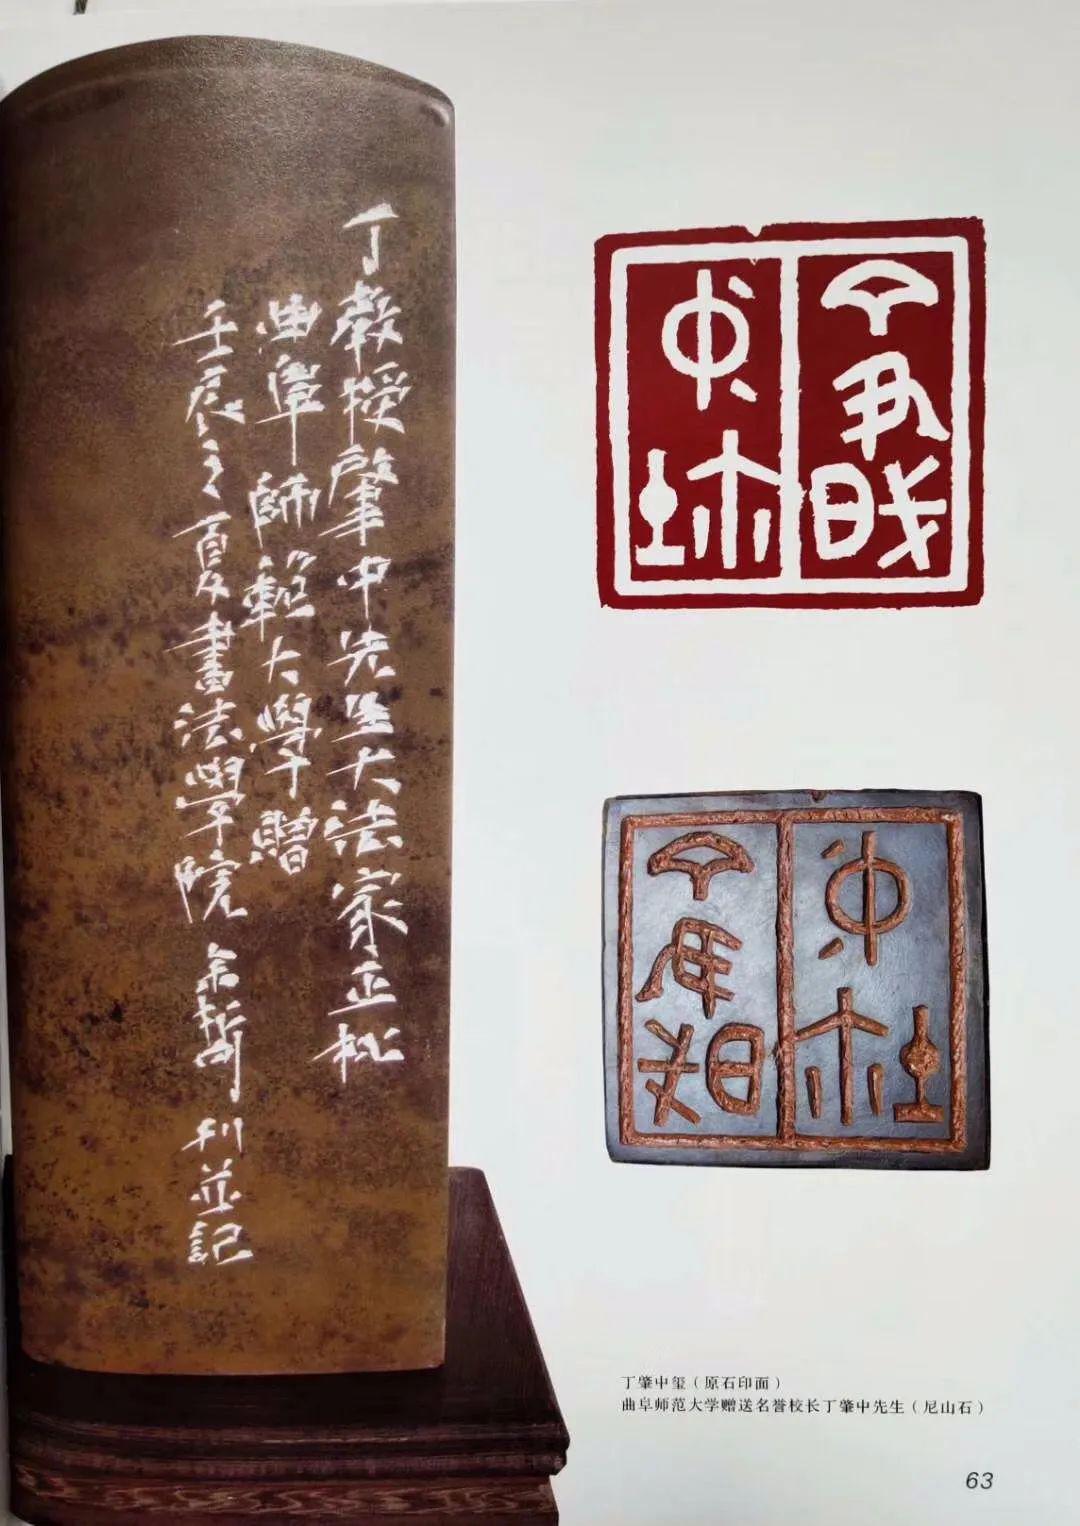 丁教授肇中先生大法家正
曲阜師範大學贈
壬辰之夏書法學院
刊並記
丁肇中玺（原石印面）
曲阜师范大学赠送名誉校长丁肇中先生（尼山石）
63